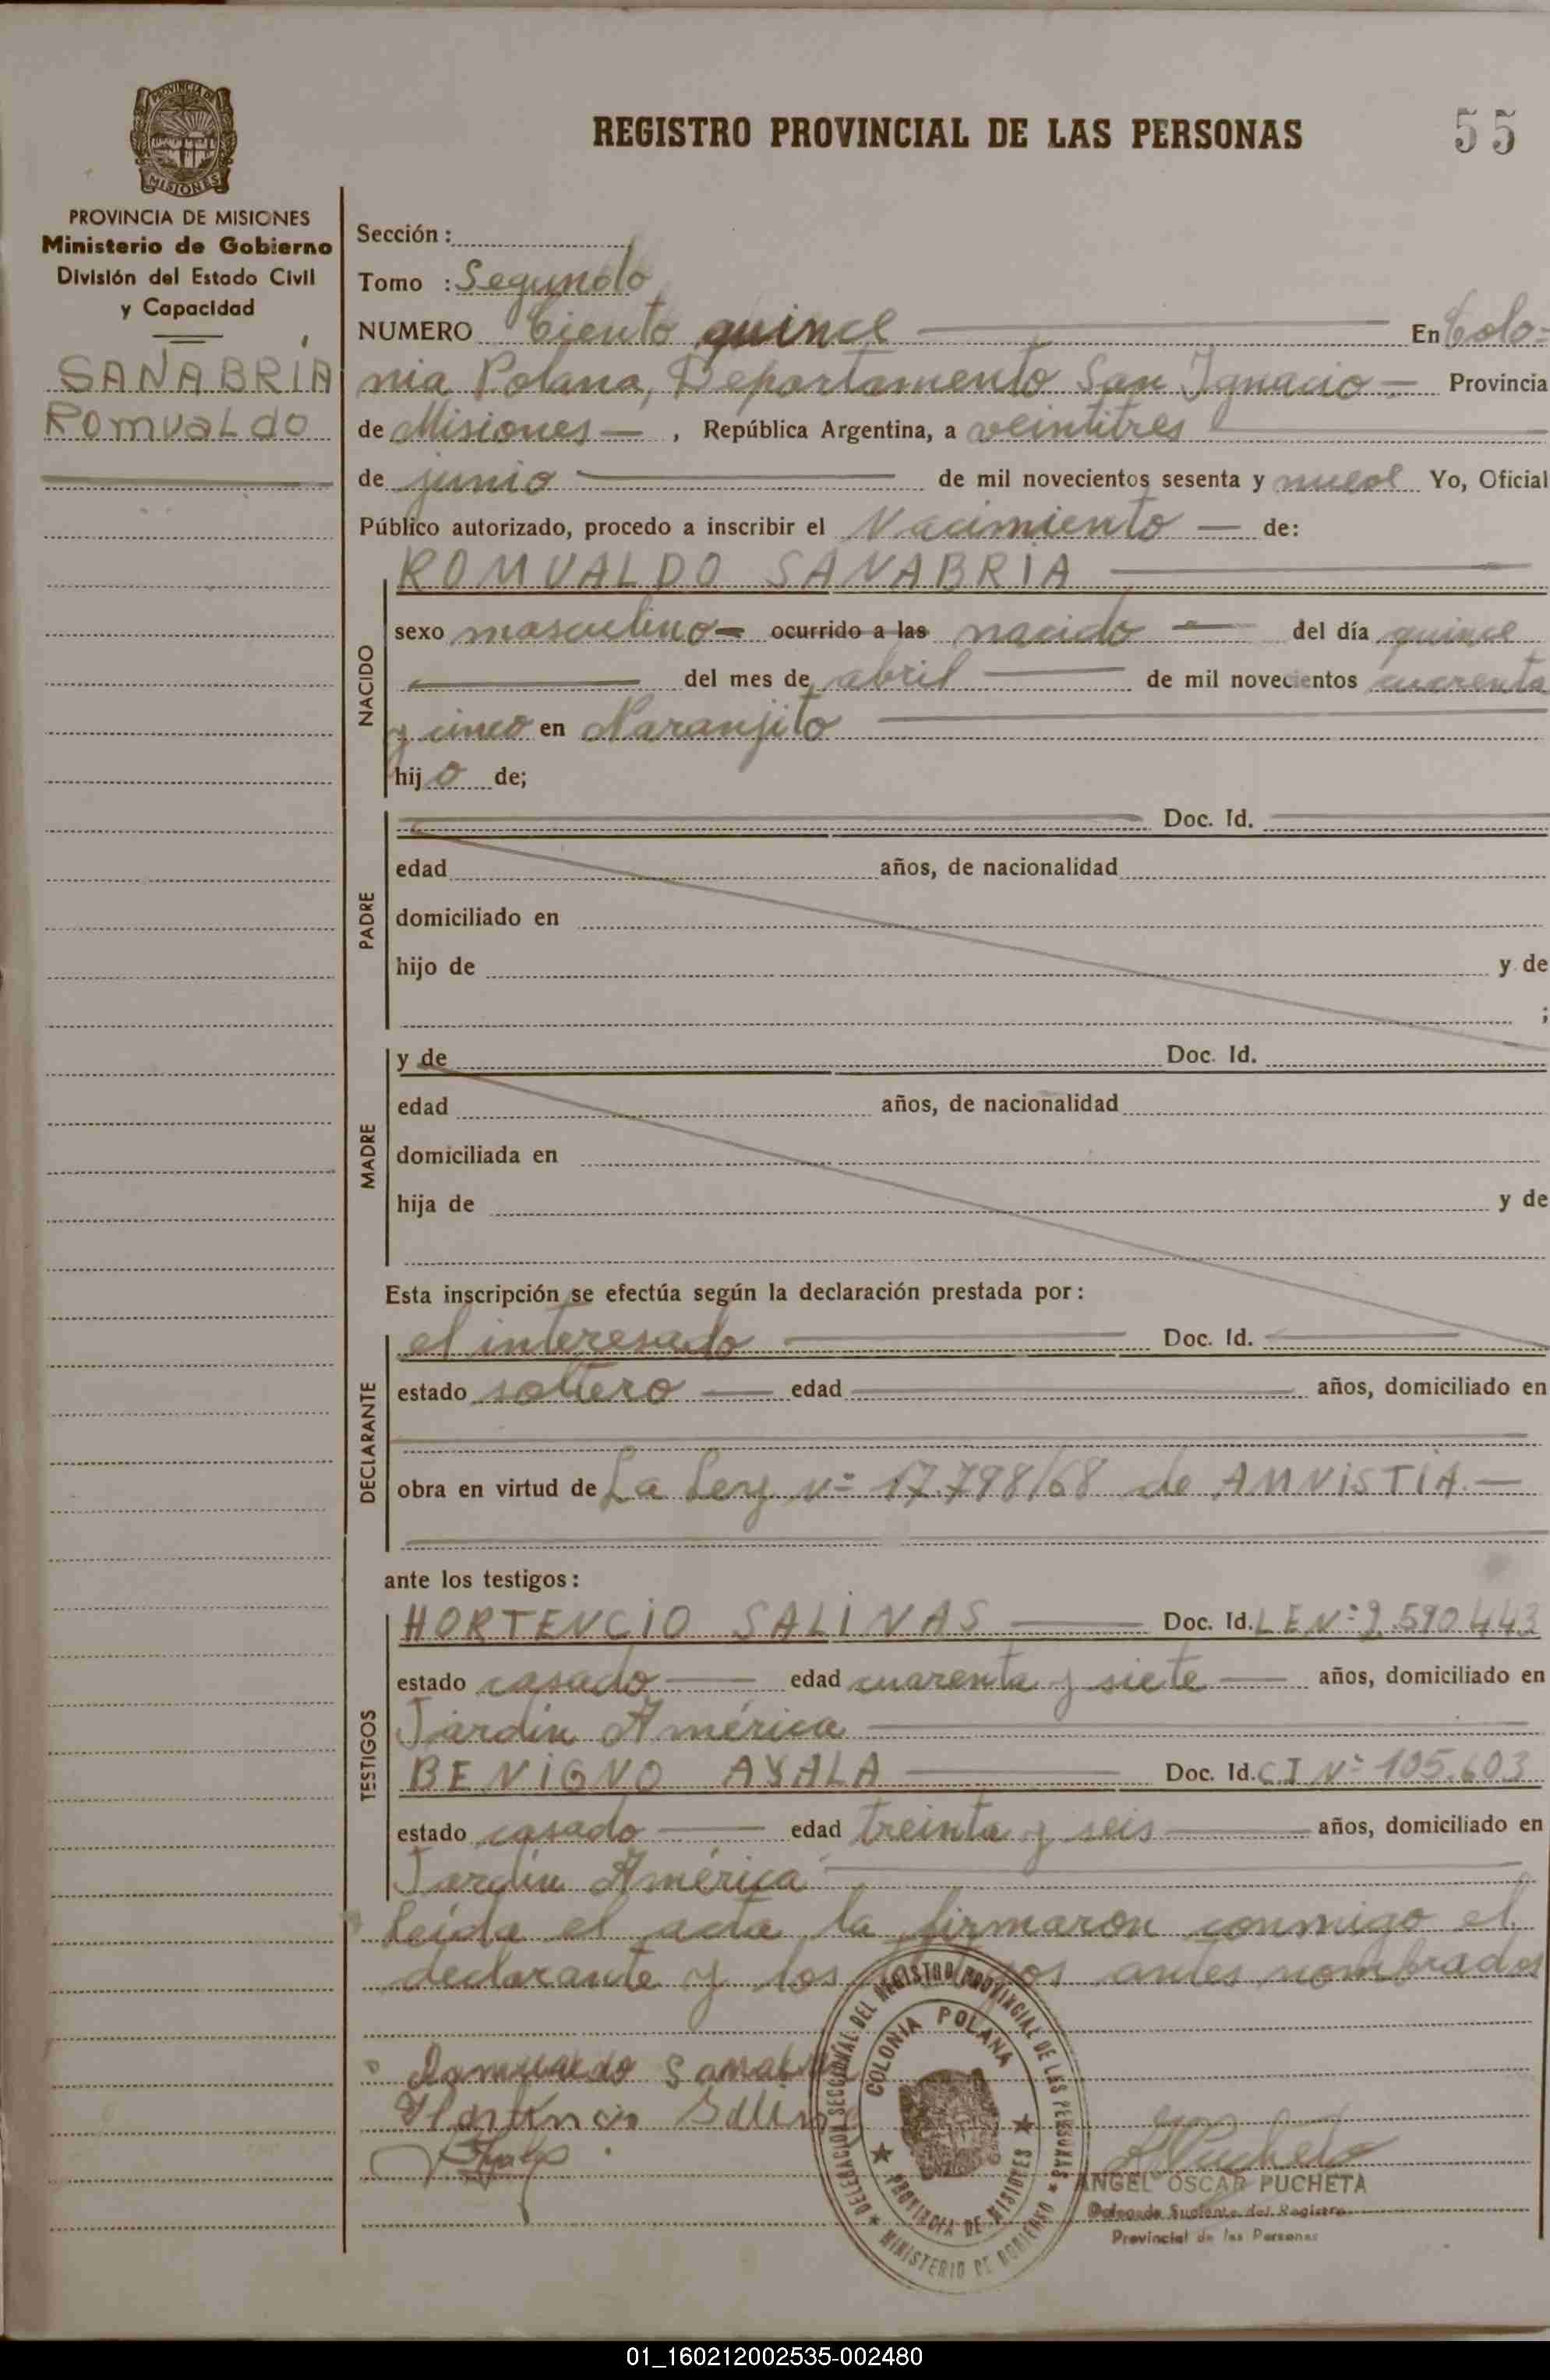 REGISTRO PROVINCIAL DE LAS PERSONAS
55
PROVINCIA DE MISIONES
MISIONES
PROVINCIA DE MISIONES
Ministerio de Gobierno
División del Estado Civil
y Capacidad
SANABRIA
Romualdo
Sección :
Tomo : Segundo
NUMERO Ciento quince En Colo=
nia Polana, Departamento San Ignacio = Provincia
de Misiones — , República Argentina, a veintitres
de junio de mil novecientos sesenta y nueve Yo, Oficial
Público autorizado, procedo a inscribir el Nacimiento — de:
NACIDO
ROMUALDO SANABRIA
sexo masculino = ocurrido a las nacido — del día quince
del mes de abril de mil novecientos cuarenta
y cinco en Naranjito
hijo de;
PADRE
Doc. Id.
edad años, de nacionalidad
domiciliado en
hijo de y de
;
MADRE
y de Doc. Id.
edad años, de nacionalidad
domiciliada en
hija de y de
Esta inscripción se efectúa según la declaración prestada por :
DECLARANTE
el interesado Doc. Id.
estado soltero — edad años, domiciliado en
obra en virtud de La Ley nº 17.798/68 de AMNISTIA. —
ante los testigos :
TESTIGOS
HORTENCIO SALINAS Doc. Id. L E Nº 9.590.443
estado casado — edad cuarenta y siete — años, domiciliado en
Jardín América
BENIGNO AYALA Doc. Id. C I Nº 105.603
estado casado — edad treinta y seis años, domiciliado en
Jardín América
Leída el acta la firmaron conmigo el
declarante y los testigos antes nombrados
Romualdo Sanabria
Hortencio Salinas
Ayala
DELEGACION SECCIONAL DEL REGISTRO PROVINCIAL DE LAS PERSONAS
MINISTERIO DE GOBIERNO
COLONIA POLANA
PROVINCIA DE MISIONES
Pucheta
ANGEL OSCAR PUCHETA
Delegado Suplente del Registro
Provincial de las Personas
01_160212002535-002480